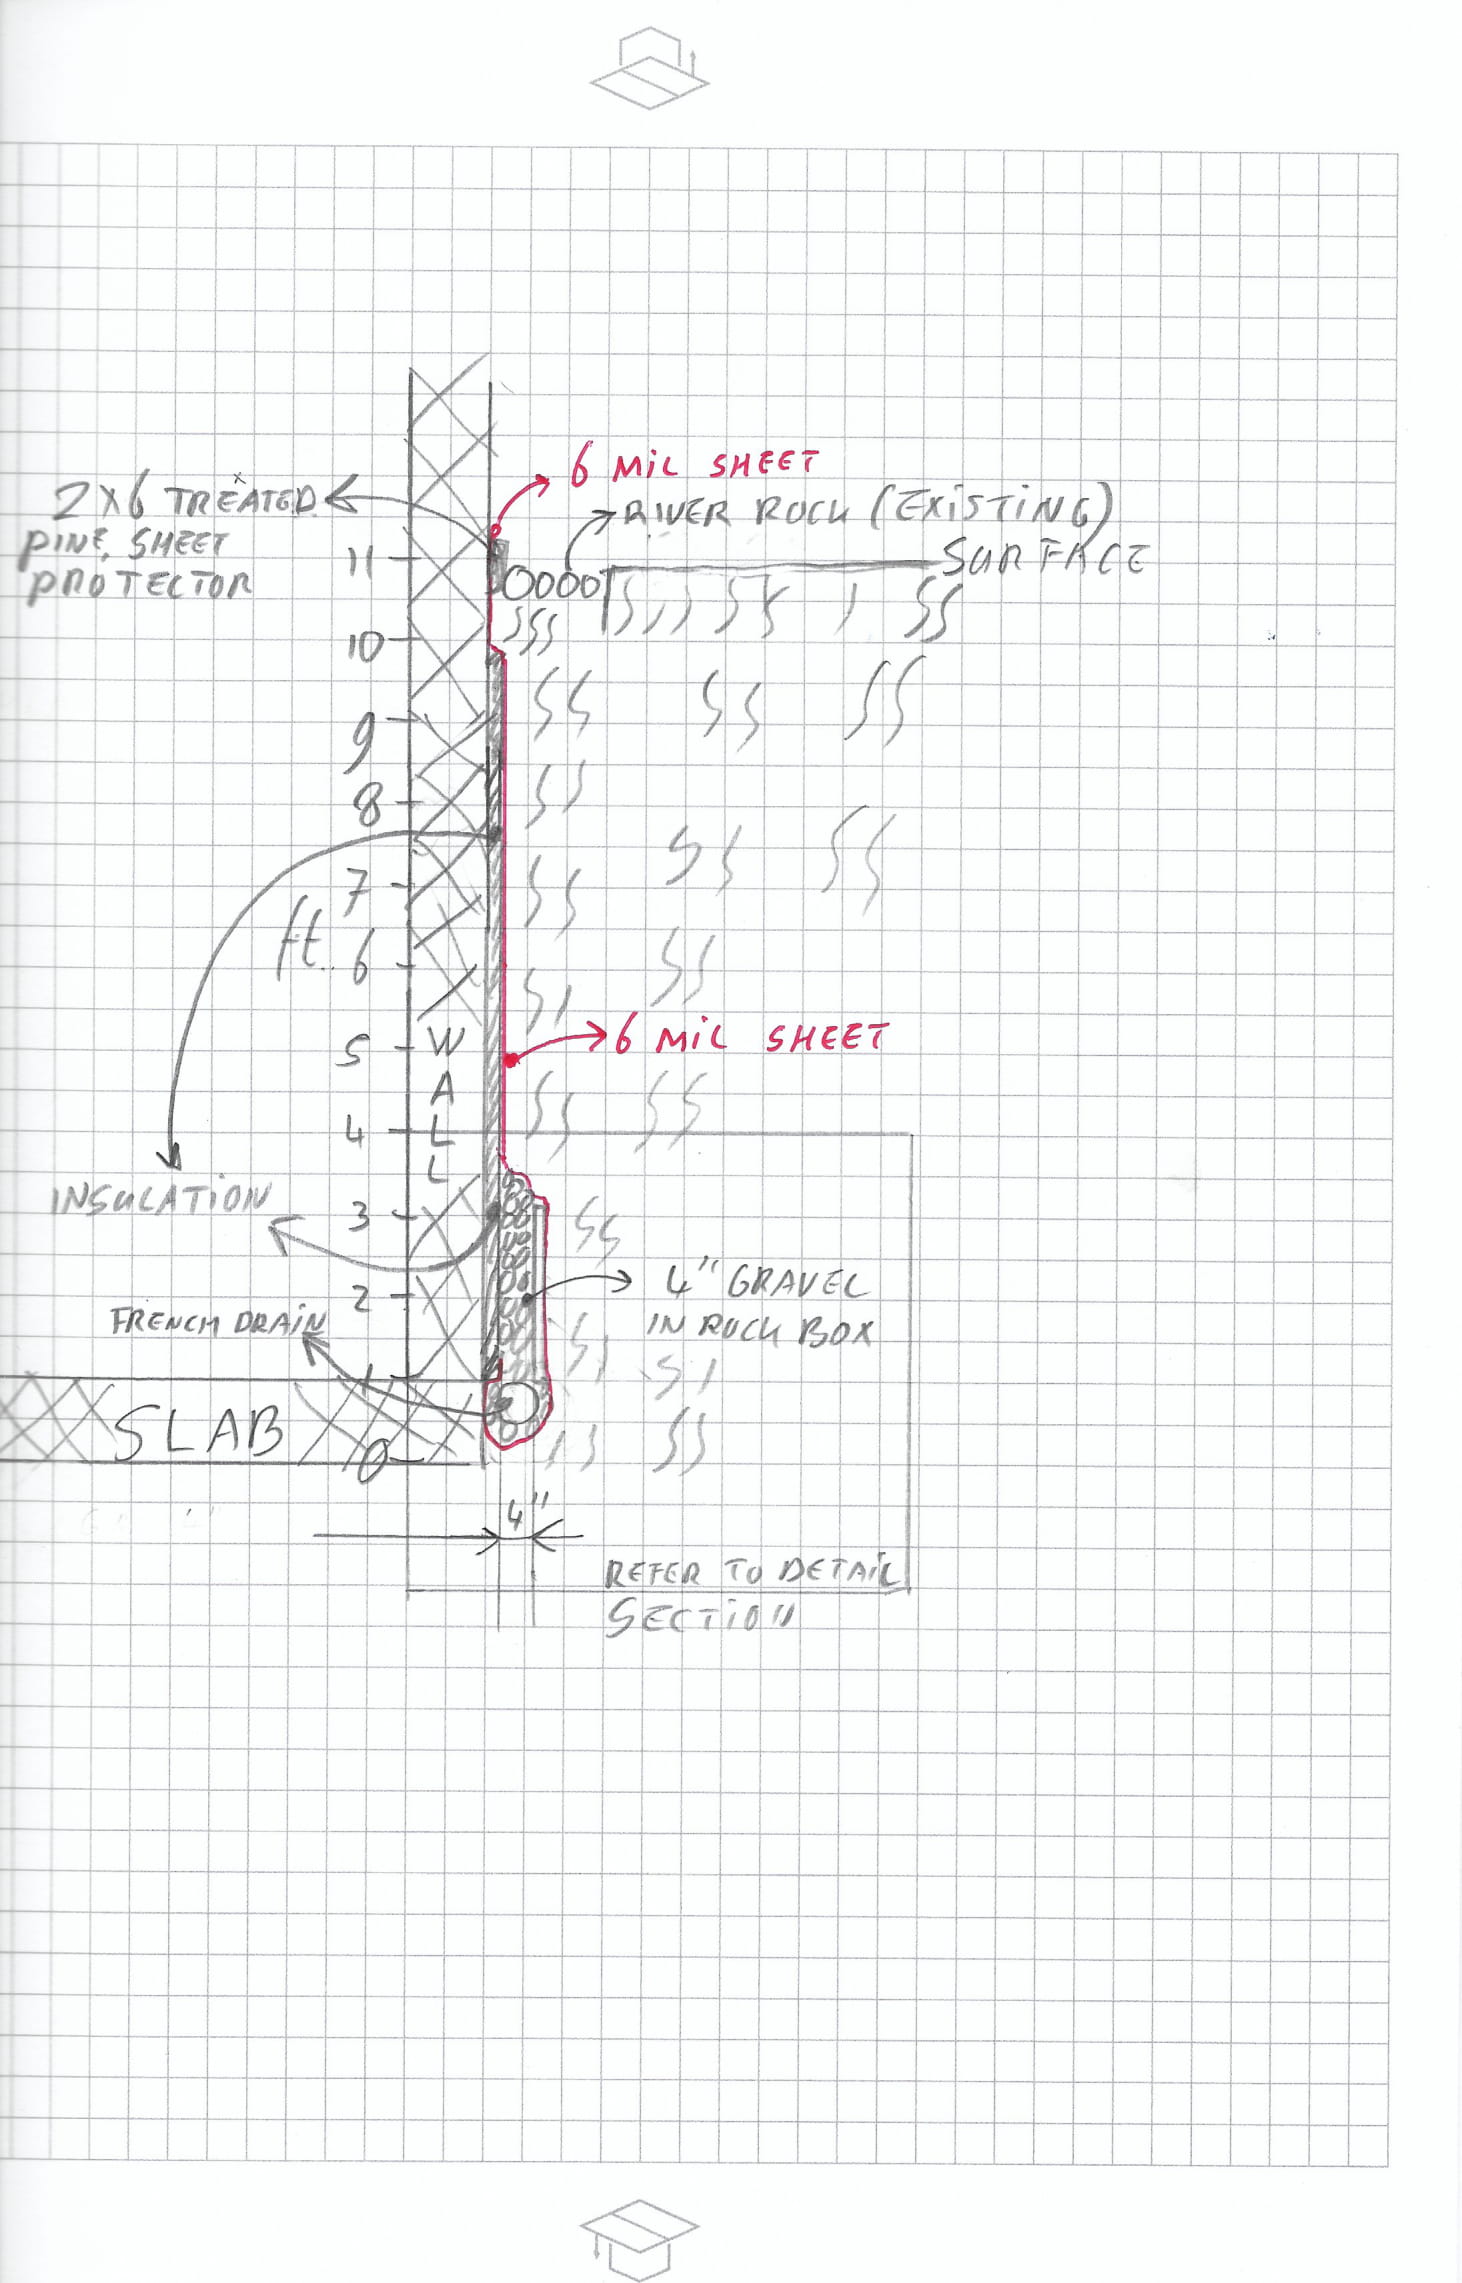 6 MIL SHEET
2X6 TREATED
PINE, SHEET
PROTECTOR
RIVER ROCK (EXISTING)
SURFACE
11
10
9
8
7
ft.
6
5
WALL
6 MIL SHEET
4
INSULATION
3
2
4" GRAVEL
IN ROCK BOX
FRENCH DRAIN
1
SLAB
0
4"
REFER TO DETAIL
SECTION